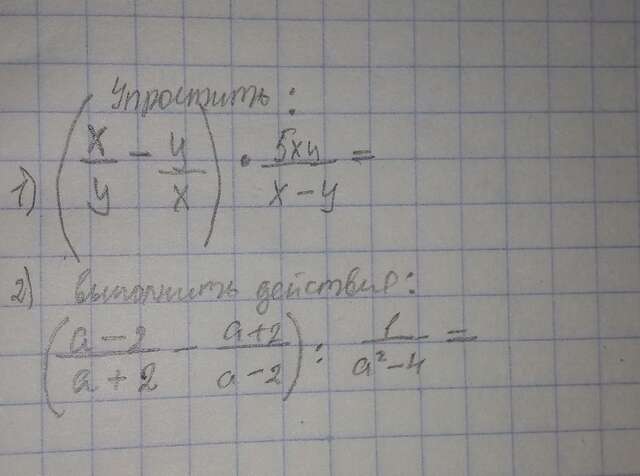 Упростить:
1) (x/y - y/x) · 5xy/(x-y) =
2) выполнить действия:
((a-2)/(a+2) - (a+2)/(a-2)) : 1/(a²-4) =